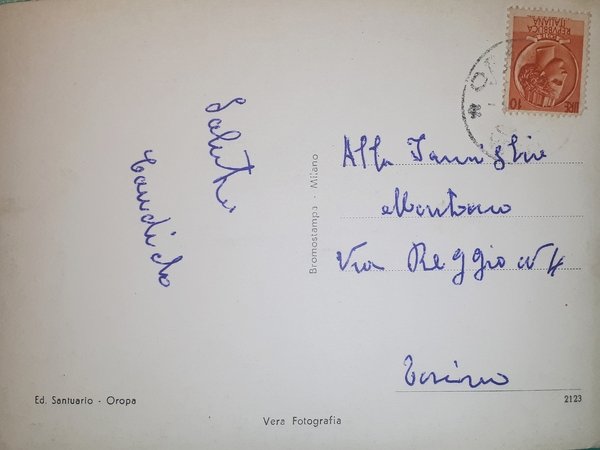 Saluti
Candido
REPVBBLICA
ITALIANA
LIRE 10
Alla Famiglia
Montano
Via Reggio N 4
Torino
Bromostampa - Milano
Ed. Santuario - Oropa
2123
Vera Fotografia